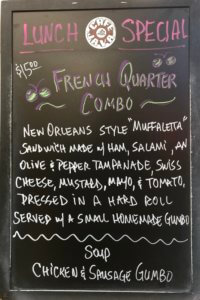 LUNCH SPECIAL
$15.00
FRENCH QUARTER
COMBO
NEW ORLEANS STYLE "MUFFALETTA"
SANDWICH MADE W/ HAM, SALAMI, AN
OLIVE & PEPPER TAMPANADE, SWISS
CHEESE, MUSTARD, MAYO, & TOMATO,
DRESSED IN A HARD ROLL
SERVED W/ A SMALL HOMEMADE GUMBO
Soup
CHICKEN & SAUSAGE GUMBO